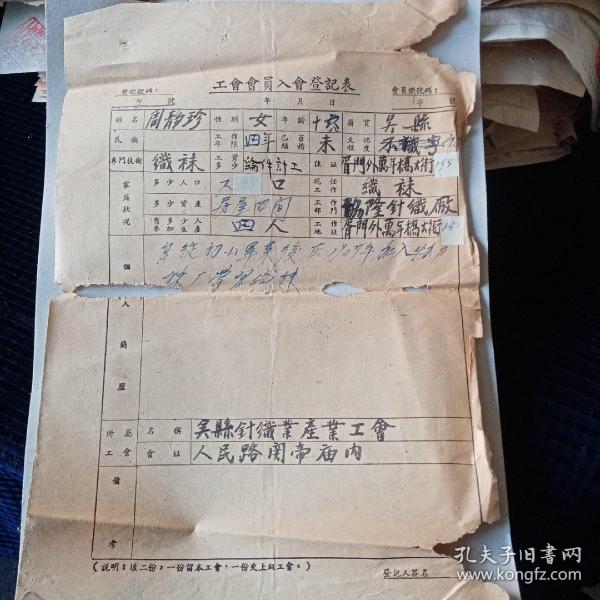 工會會員入會登記表
登記號碼： 會員證號碼：
字 號 年 月 日 字 號
姓名 周靜珍 性別 女 年齡 十六 籍貫 吳縣
民族 工作年限 四年 已否結婚 未 文化程度 不識字
專門技術 織袜 工資多少 論件計工 住址 胥門外萬年橋大街
家庭狀況 多少人口 口 現任工作 織袜
多少資產 房屋四間 工作部門 協隆針織廠
有多少人參加生產 四人 工作地址 胥門外萬年橋大街
個人簡歷
所屬工會 名稱 吳縣針織業產業工會
會址 人民路関帝庙内
備考
(說明：填二份；一份留本工會，一份交上級工會。)
登記人簽名
孔夫子旧書网
www.kongfz.com